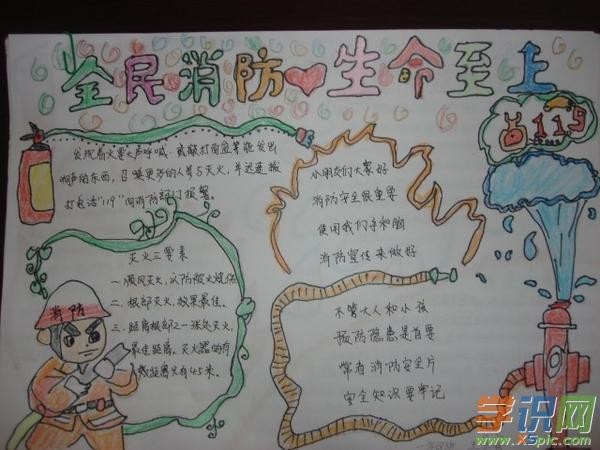 全民消防 生命至上
119
发现着火要大声呼喊、或敲打面盆等能发出
响声的东西,召唤更多的人参与灭火,并迅速拨
打电话"119"向消防部门报警。
小朋友们大家好
消防安全很重要
使用我们手和脑
消防宣传来做好
灭火三要素
一.顺风灭火,以防被火烧伤
二.根部灭火,效果最佳。
三.距离根部2一3米处灭火,
最佳距离。灭火器的有
效距离只有45米。
不管大人和小孩
预防隐患是首要
常看消防安全片
安全知识要牢记
消防
学识网
www.XSpic.com